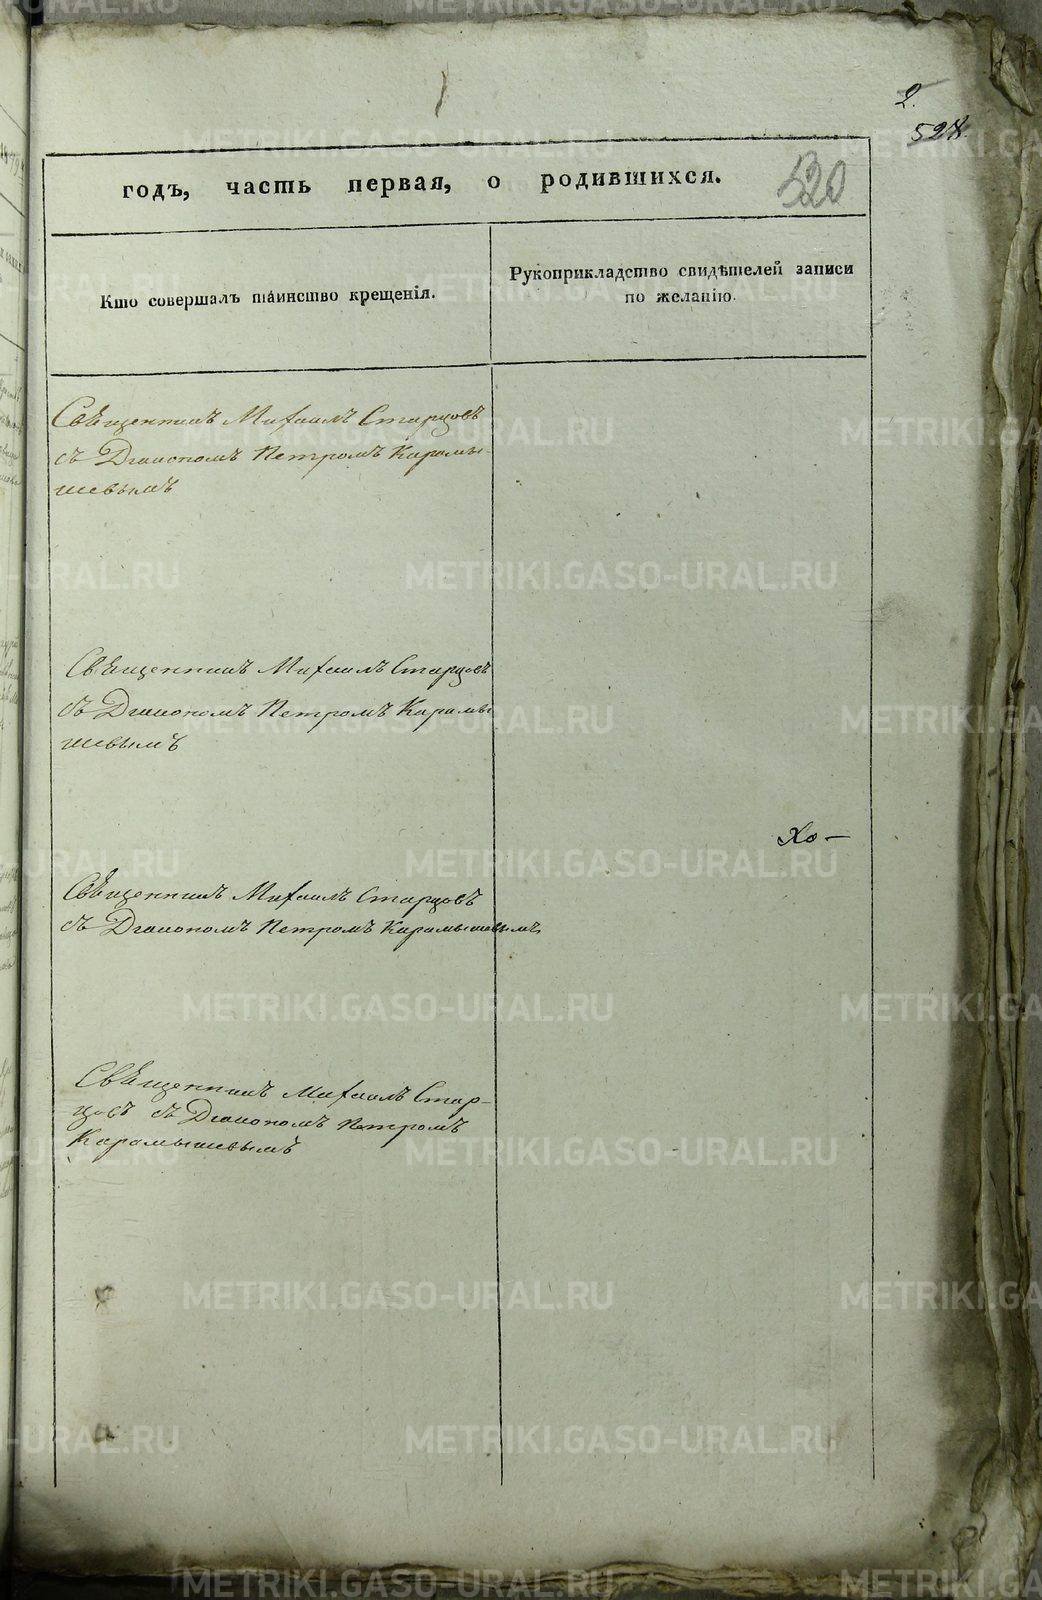 2.
527.
320
годъ, часть первая, о родившихся.
Кто совершалъ таинство крещенія.
Рукоприкладство свидѣтелей записи
по желанію.
Священникъ Михаилъ Старцовъ
съ Діакономъ Петромъ Карамы-
шевымъ
Священникъ Михаилъ Старцовъ
съ Діакономъ Петромъ Карамы
шевымъ
Хо—
Священникъ Михаилъ Старцовъ
съ Діакономъ Петромъ Карамышевымъ
Священникъ Михаилъ Стар-
цовъ съ Діакономъ Петромъ
Карамышевымъ
METRIKI.GASO-URAL.RU